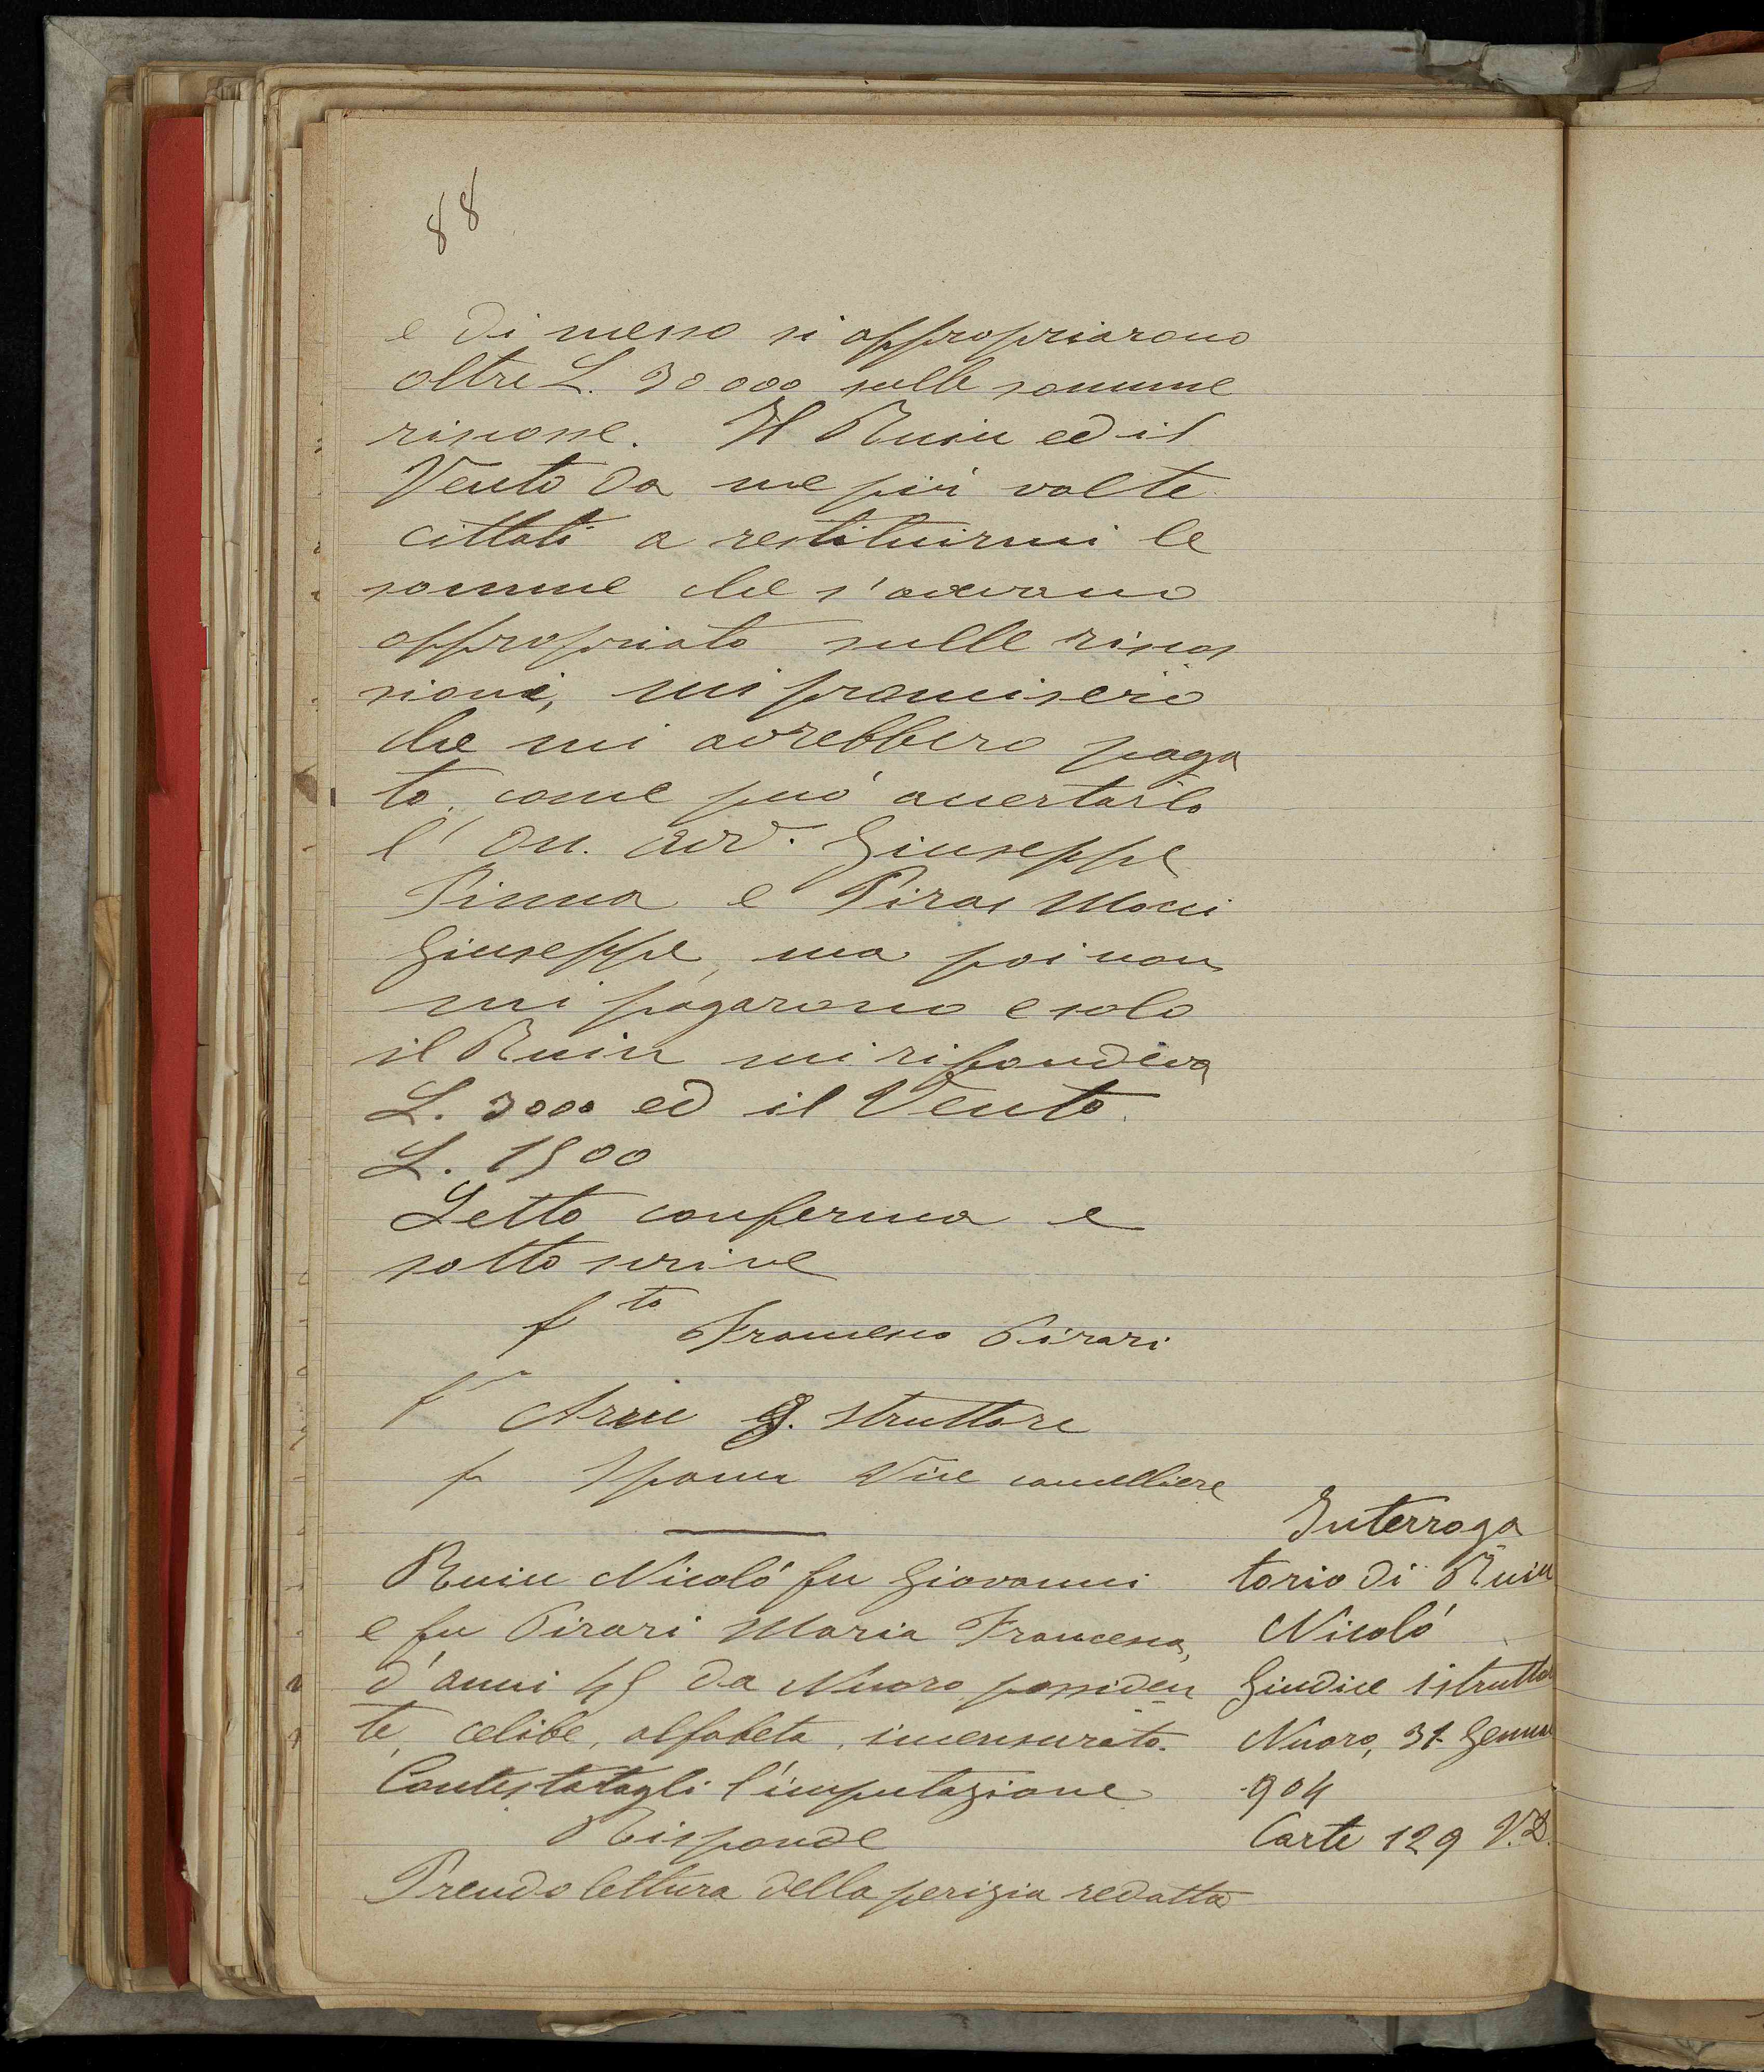 88
e di messo si appropriarono
oltre L. 30000 sulle somme
riscosse. Il Ruiu ed il
Vento da me più volte
cittati a restituirmi le
somme che s'avevano
appropriato sulle riscos
sioni, mi promisero
che mi avrebbero paga
to, come può accertarlo
l'on. avv. Giuseppe
Pinna e Piras Mocci
Giuseppe, ma poi non
mi pagarono e solo
il Ruiu mi rispondeva
L. 3000 ed il Vento
L. 1500
Letto conferma e
sotto scrive
fto Francesco Pirari
f° Ariu G. Istruttore
f Spanu Vice cancelliere
Ruiu Nicoló fu Giovanni
e fu Pirari Maria Francesca,
d'anni 45 da Nuoro possiden
te, celibe, alfabeta, incensurato.
Contestatagli l'imputazione
Risponde
Prendo lettura della perizia redatta
Interroga
torio di Ruiu
Nicoló
Giudice istruttor
Nuoro, 31 Genna
904
Carte 129 V.D.